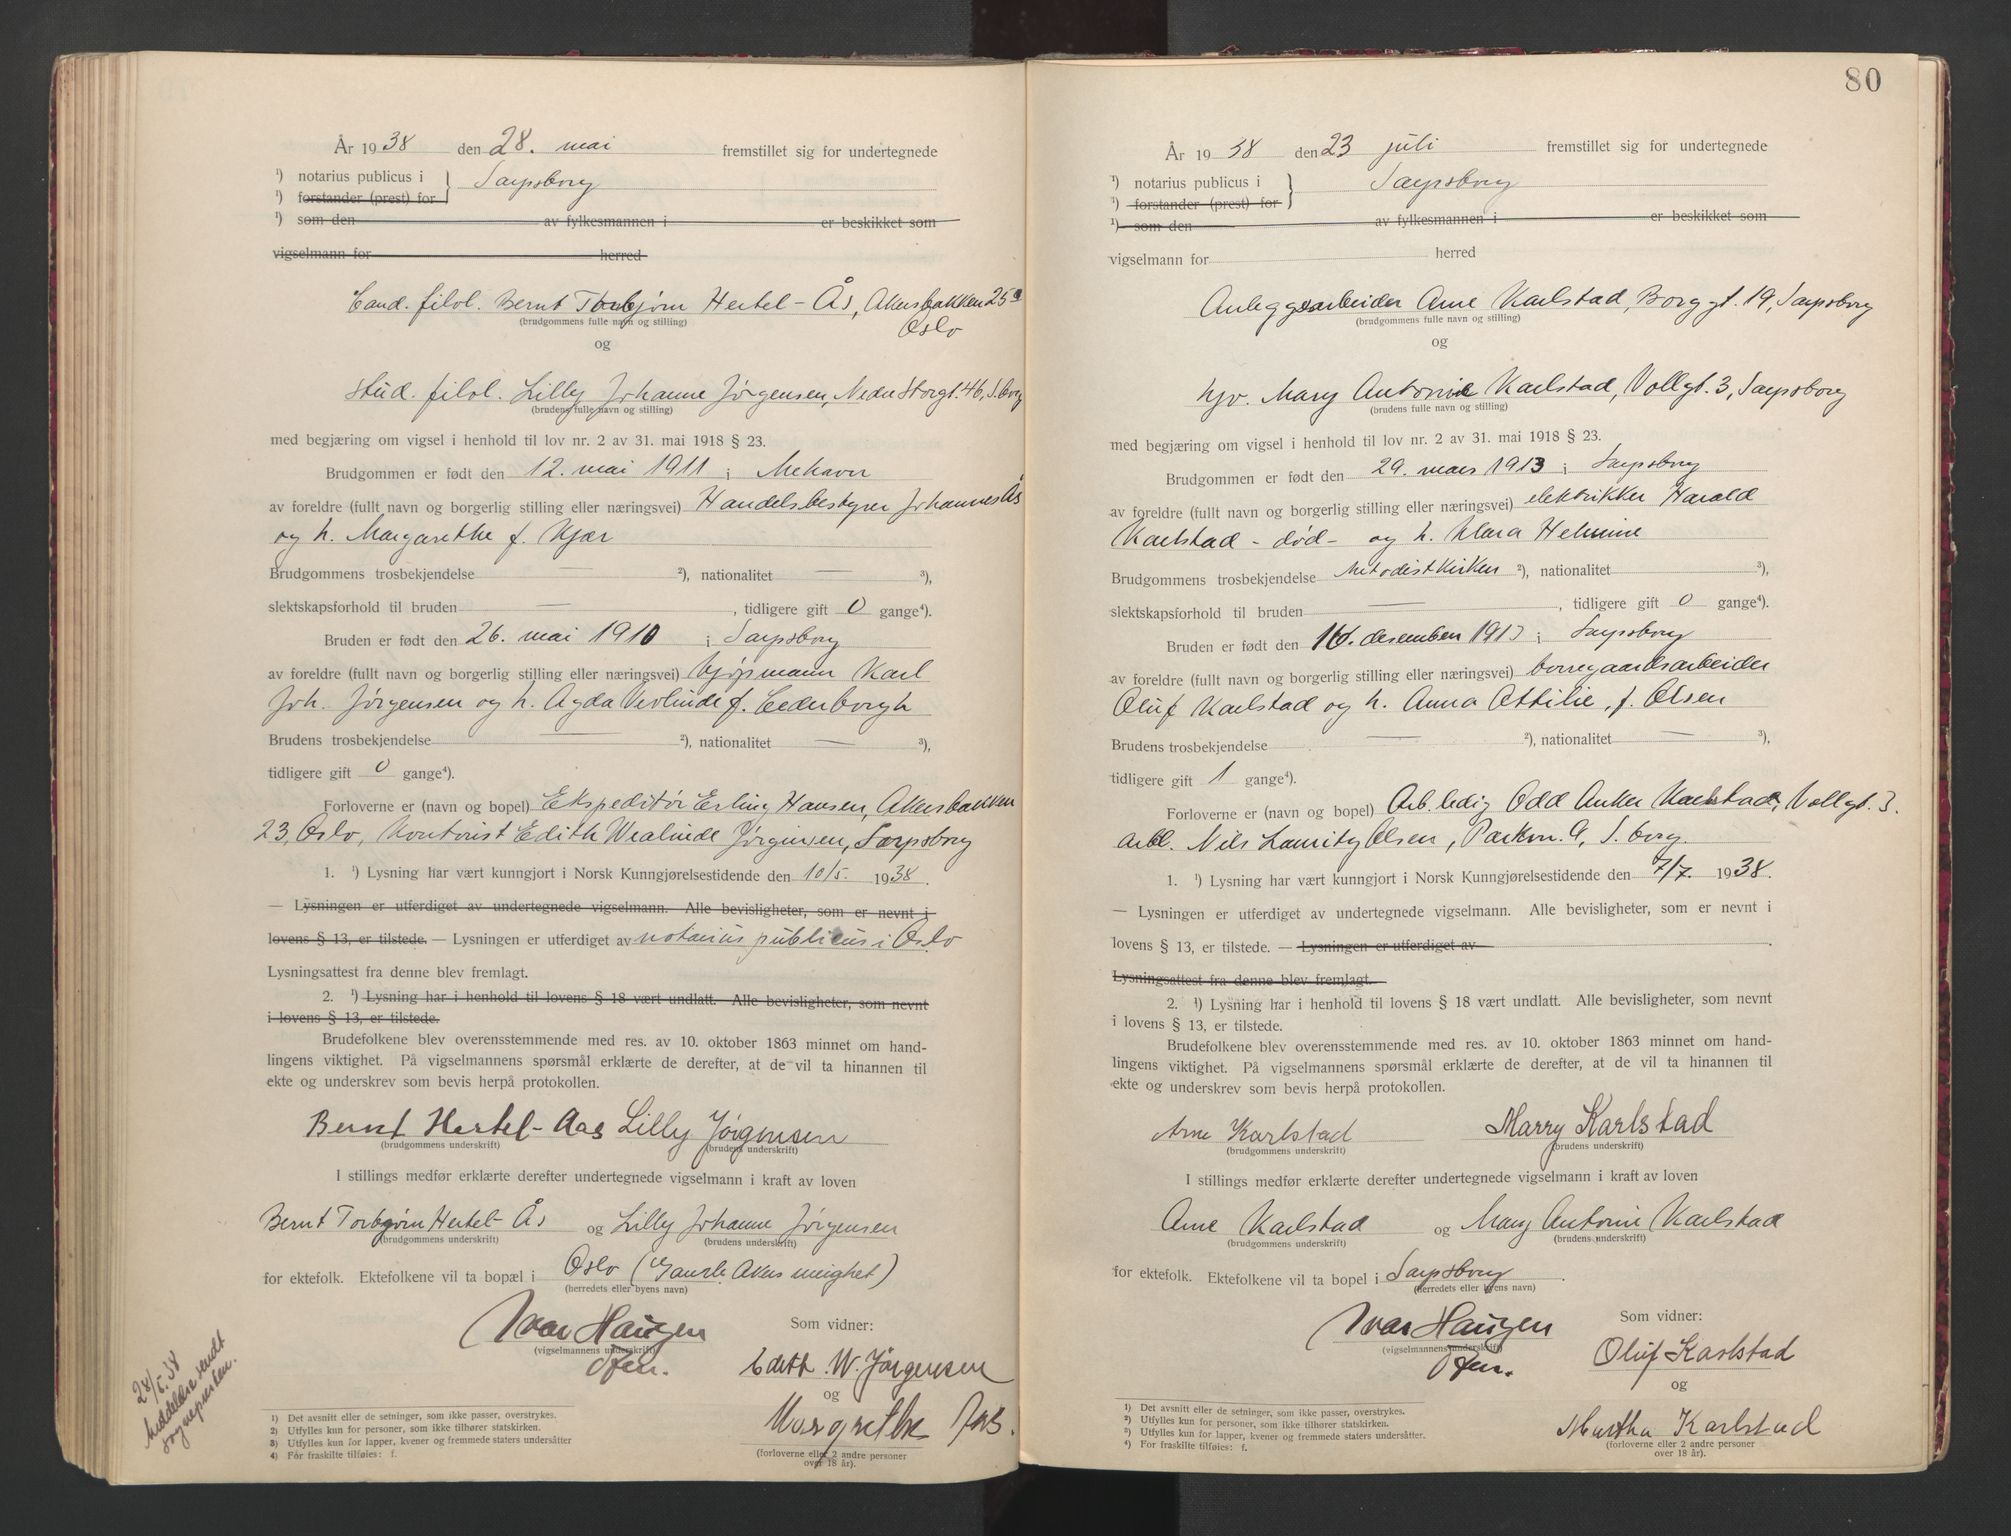 År 1938 den 28. mai fremstillet sig for undertegnede
¹) notarius publicus i } Sarpsborg
¹) forstander (prest) for
¹) som den av fylkesmannen i er beskikket som
vigselmann for herred
Cand. filol. Bernt Torbjørn Hertel-Ås, Akersbakken 25
(brudgommens fulle navn og stilling) Oslo
og
stud. filol. Lilly Johanne Jørgensen, Nedre Storgt. 46, S.borg
(brudens fulle navn og stilling)
med begjæring om vigsel i henhold til lov nr. 2 av 31. mai 1918 § 23.
Brudgommen er født den 12. mai 1911 i Mehavn
av foreldre (fullt navn og borgerlig stilling eller næringsvei) Handelsbestyrer Johannes Ås
og h. Margarethe f. Kjær
Brudgommens trosbekjendelse — ²), nationalitet — ³),
slektskapsforhold til bruden —, tidligere gift 0 gange⁴).
Bruden er født den 26. mai 1910 i Sarpsborg
av foreldre (fullt navn og borgerlig stilling eller næringsvei) kjøpmann Karl
Joh. Jørgensen og h. Agda Verlinde f. Cederborgh
Brudens trosbekjendelse — ²), nationalitet — ³),
tidligere gift 0 gange⁴).
Forloverne er (navn og bopel) Ekspeditør Erling Hansen, Akersbakken
23, Oslo, Kontorist Edith Wealinde Jørgensen, Sarpsborg
1. ¹) Lysning har vært kunngjort i Norsk Kunngjørelsestidende den 10/5. 1938.
— Lysningen er utferdiget av undertegnede vigselmann. Alle bevisligheter, som er nevnt i
lovens § 13, er tilstede. — Lysningen er utferdiget av notarius publicus i Oslo
Lysningsattest fra denne blev fremlagt.
2. ¹) Lysning har i henhold til lovens § 18 vært undlatt. Alle bevisligheter, som nevnt
i lovens § 13, er tilstede.
Brudefolkene blev overensstemmende med res. av 10. oktober 1863 minnet om hand-
lingens viktighet. På vigselmannens spørsmål erklærte de derefter, at de vil ta hinannen til
ekte og underskrev som bevis herpå protokollen.
Bernt Hertel-Aas Lilly Jørgensen
(brudgommens underskrift) (brudens underskrift)
I stillings medfør erklærte derefter undertegnede vigselmann i kraft av loven
Bernt Torbjørn Hertel-Ås og Lilly Johanne Jørgensen
(brudgommens underskrift) (brudens underskrift)
for ektefolk. Ektefolkene vil ta bopæl i Oslo (Gamle Akers menighet)
(herredets eller byens navn)
Ivar Haugen Som vidner:
(vigselmannens underskrift)
Edith W. Jørgensen
og
Margrethe Aas.
(forloverne eller 2 andre personer
over 18 år).
28/5.38
Meddelelse sendt
sognepresten.
1) Det avsnitt eller de setninger, som ikke passer, overstrykes.
2) Utfylles kun for personer, som ikke tilhører statskirken.
3) Utfylles kun for lapper, kvener og fremmede staters undersåtter
4) For fraskilte tilføies: f.
80
År 1938 den 23 juli fremstillet sig for undertegnede
¹) notarius publicus i } Sarpsborg
¹) forstander (prest) for
¹) som den av fylkesmannen i er beskikket som
vigselmann for herred
Anleggsarbeider Arne Karlstad, Borggt. 19, Sarpsborg
(brudgommens fulle navn og stilling)
og
hjv. Mary Antonie Karlstad, Vollgt. 3, Sarpsborg
(brudens fulle navn og stilling)
med begjæring om vigsel i henhold til lov nr. 2 av 31. mai 1918 § 23.
Brudgommen er født den 29. mars 1913 i Sarpsborg
av foreldre (fullt navn og borgerlig stilling eller næringsvei) elektrikker Harald
Karlstad - død - og h. Klara Helmine
Brudgommens trosbekjendelse Metodistkirken ²), nationalitet ³),
slektskapsforhold til bruden —, tidligere gift 0 gange⁴).
Bruden er født den desember 1913 i Sarpsborg
av foreldre (fullt navn og borgerlig stilling eller næringsvei) borregaardsarbeider
Oluf Karlstad og h. Anna Ottilie, f. Olsen
Brudens trosbekjendelse ²), nationalitet — ³),
tidligere gift 1 gange⁴).
Forloverne er (navn og bopel) Arb.ledig Odd Anker Karlstad, Vollgt. 3.
arbl. Nils Lauritz Olsen, Parkv. 9, S.borg.
1. ¹) Lysning har vært kunngjort i Norsk Kunngjørelsestidende den 7/7. 1938.
— Lysningen er utferdiget av undertegnede vigselmann. Alle bevisligheter, som er nevnt i
lovens § 13, er tilstede. — Lysningen er utferdiget av
Lysningsattest fra denne blev fremlagt.
2. ¹) Lysning har i henhold til lovens § 18 vært undlatt. Alle bevisligheter, som nevnt
i lovens § 13, er tilstede.
Brudefolkene blev overensstemmende med res. av 10. oktober 1863 minnet om hand-
lingens viktighet. På vigselmannens spørsmål erklærte de derefter, at de vil ta hinannen til
ekte og underskrev som bevis herpå protokollen.
Arne Karlstad Marry Karlstad
(brudgommens underskrift) (brudens underskrift)
I stillings medfør erklærte derefter undertegnede vigselmann i kraft av loven
Arne Karlstad og Mary Antonie Karlstad
(brudgommens underskrift) (brudens underskrift)
for ektefolk. Ektefolkene vil ta bopel i Sarpsborg.
(herredets eller byens navn)
Ivar Haugen Som vidner:
(vigselmannens underskrift)
Oluf Karlstad
og
Martha Karlstad
(forloverne eller 2 andre personer
over 18 år).
1) Det avsnitt eller de setninger, som ikke passer, overstrykes.
2) Utfylles kun for personer, som ikke tilhører statskirken.
3) Utfylles kun for lapper, kvener og fremmede staters undersåtter.
4) For fraskilte tilføies: f.